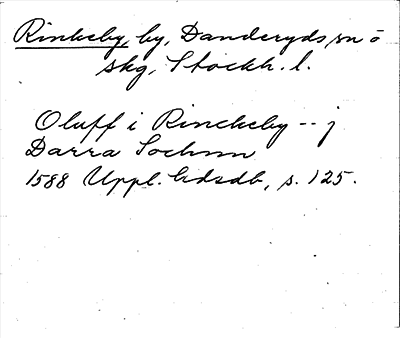 Rinkeby, by, Danderyds sn o
skg, Stockh. l.
Oluff i Rinckeby -- j
Darra Sochnn
1588 Uppl. hdsdb, s. 125.